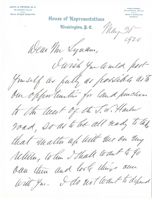 House of Representatives
Washington, D.C.
May 25
Dear Mr. Lyman,
I wish you would post
yourself as fully as possible as to
our opportunities for land purchase
in the heart of the
road, so as to be all ready to take
that matter up with me on my
return, when I shall want to go
over them and look things over
with you. I do not want to depend